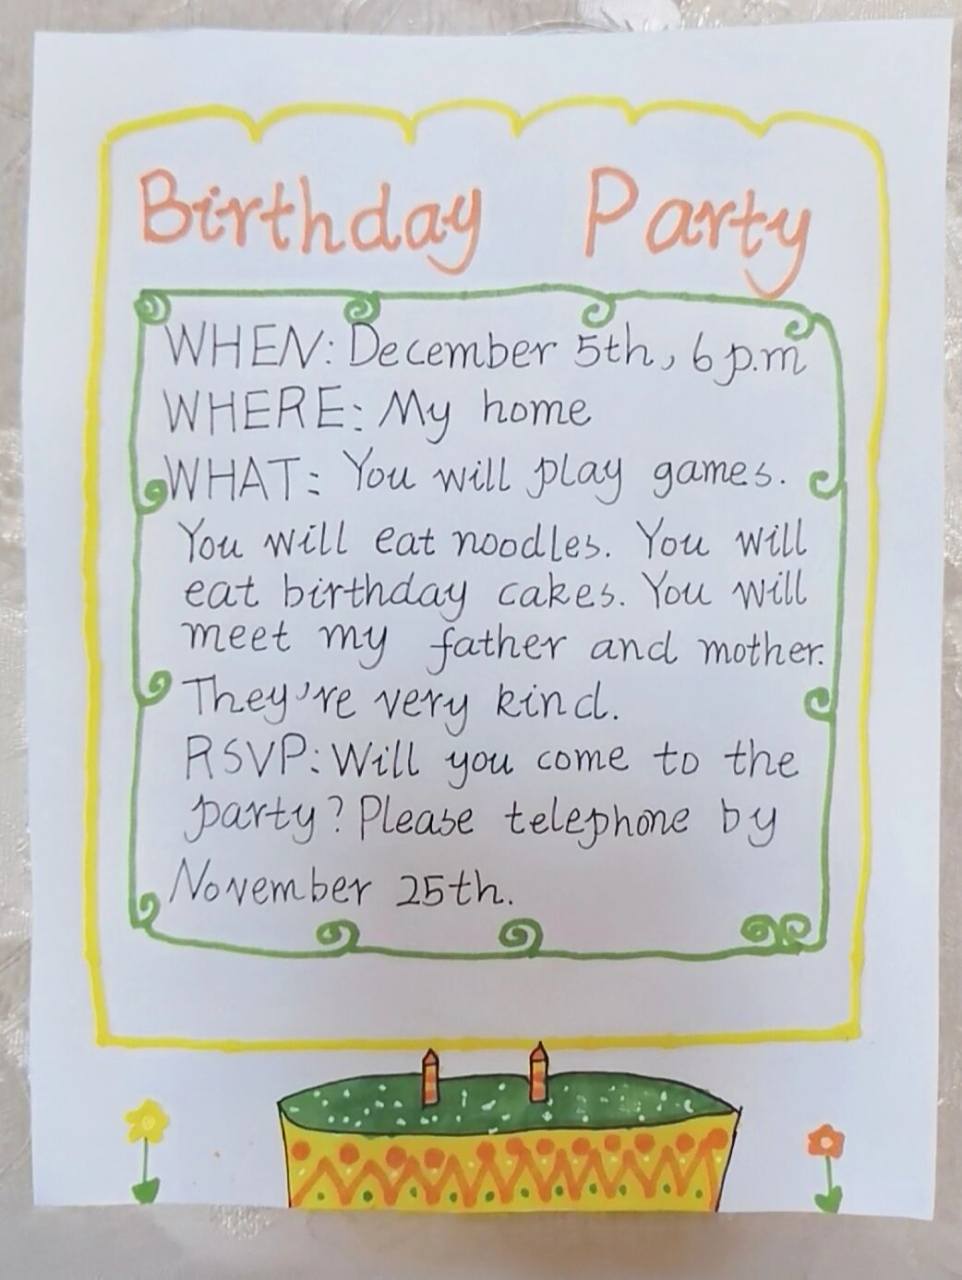 Birthday Party
WHEN: December 5th, 6 p.m
WHERE: My home
WHAT: You will play games.
You will eat noodles. You will
eat birthday cakes. You will
meet my father and mother.
They're very kind.
RSVP: Will you come to the
party? Please telephone by
November 25th.